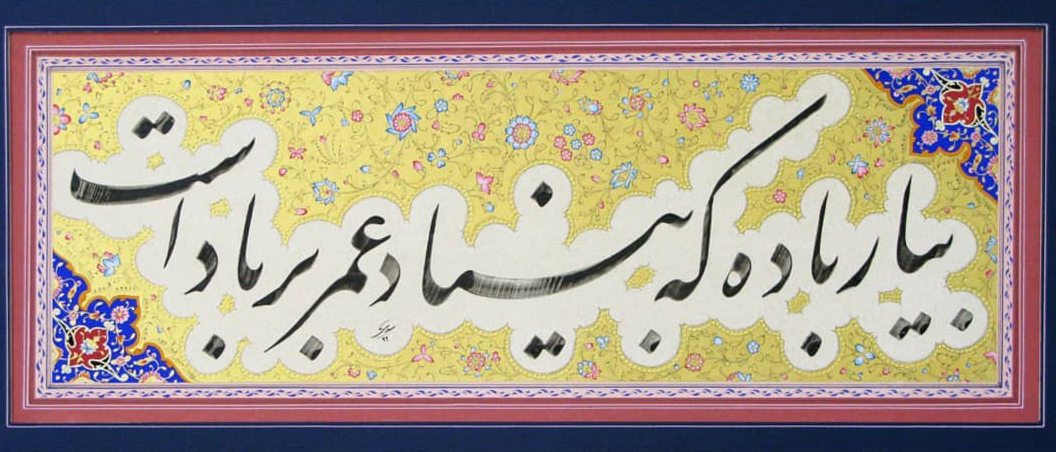 بیار باده که بنیاد عمر بر باد است